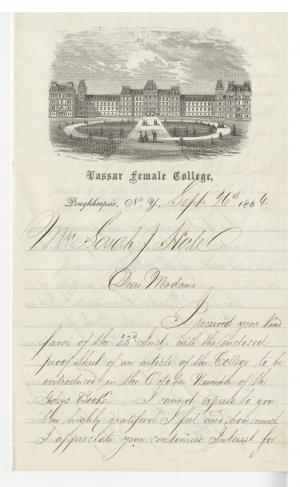 Vassar Female College,
Poughkeepsie, N. Y. Sept 26th 1864
Mrs Sarah J Hale
Dear Madame
I received your kind
favor of the 23d Inst, with the inclosed
proof sheet of an article of the College to be
introduced in the October Number of the
Ladys Book. I cannot express to you
how highly gratified I feel and how much
I appreciate your continued Interest for